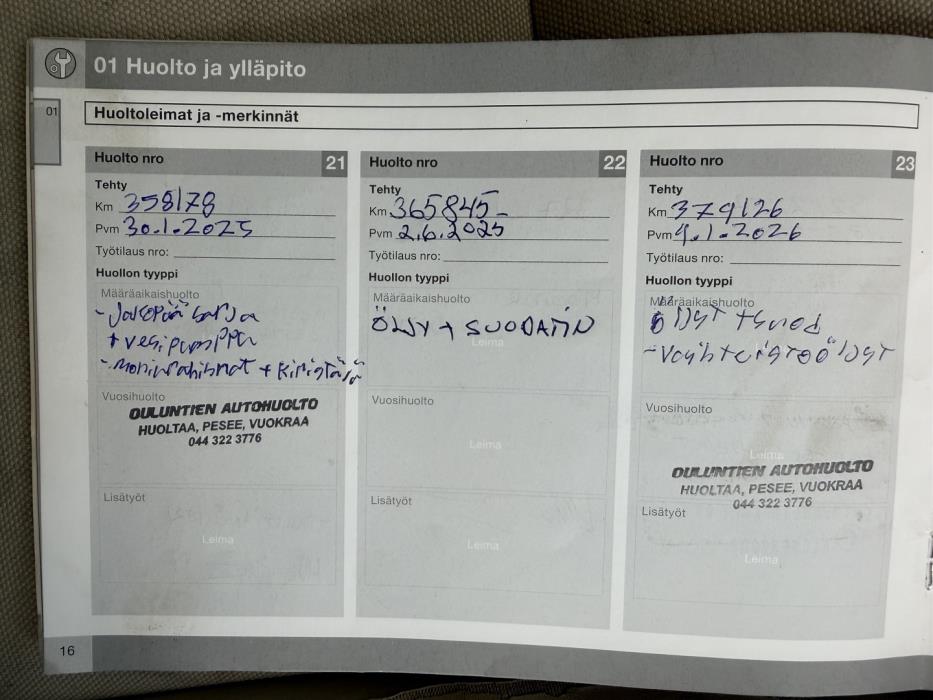 01 Huolto ja ylläpito
01
Huoltoleimat ja -merkinnät
Huolto nro 21
Tehty
Km 358178
Pvm 30.1.2025
Työtilaus nro:
Huollon tyyppi
Määräaikaishuolto
- Jakopään sarja
+ vesipumppu
- Moniurahihnat + kiristäjä
Vuosihuolto
OULUNTIEN AUTOHUOLTO
HUOLTAA, PESEE, VUOKRAA
044 322 3776
Lisätyöt
Leima
Huolto nro 22
Tehty
Km 365845
Pvm 2.6.2025
Työtilaus nro:
Huollon tyyppi
Määräaikaishuolto
ÖLJY + SUODATIN
Leima
Vuosihuolto
Leima
Lisätyöt
Leima
Huolto nro 23
Tehty
Km 379126
Pvm 9.1.2026
Työtilaus nro:
Huollon tyyppi
Määräaikaishuolto
Öljyt
Vuosihuolto
Leima
OULUNTIEN AUTOHUOLTO
HUOLTAA, PESEE, VUOKRAA
044 322 3776
Lisätyöt
Leima
16